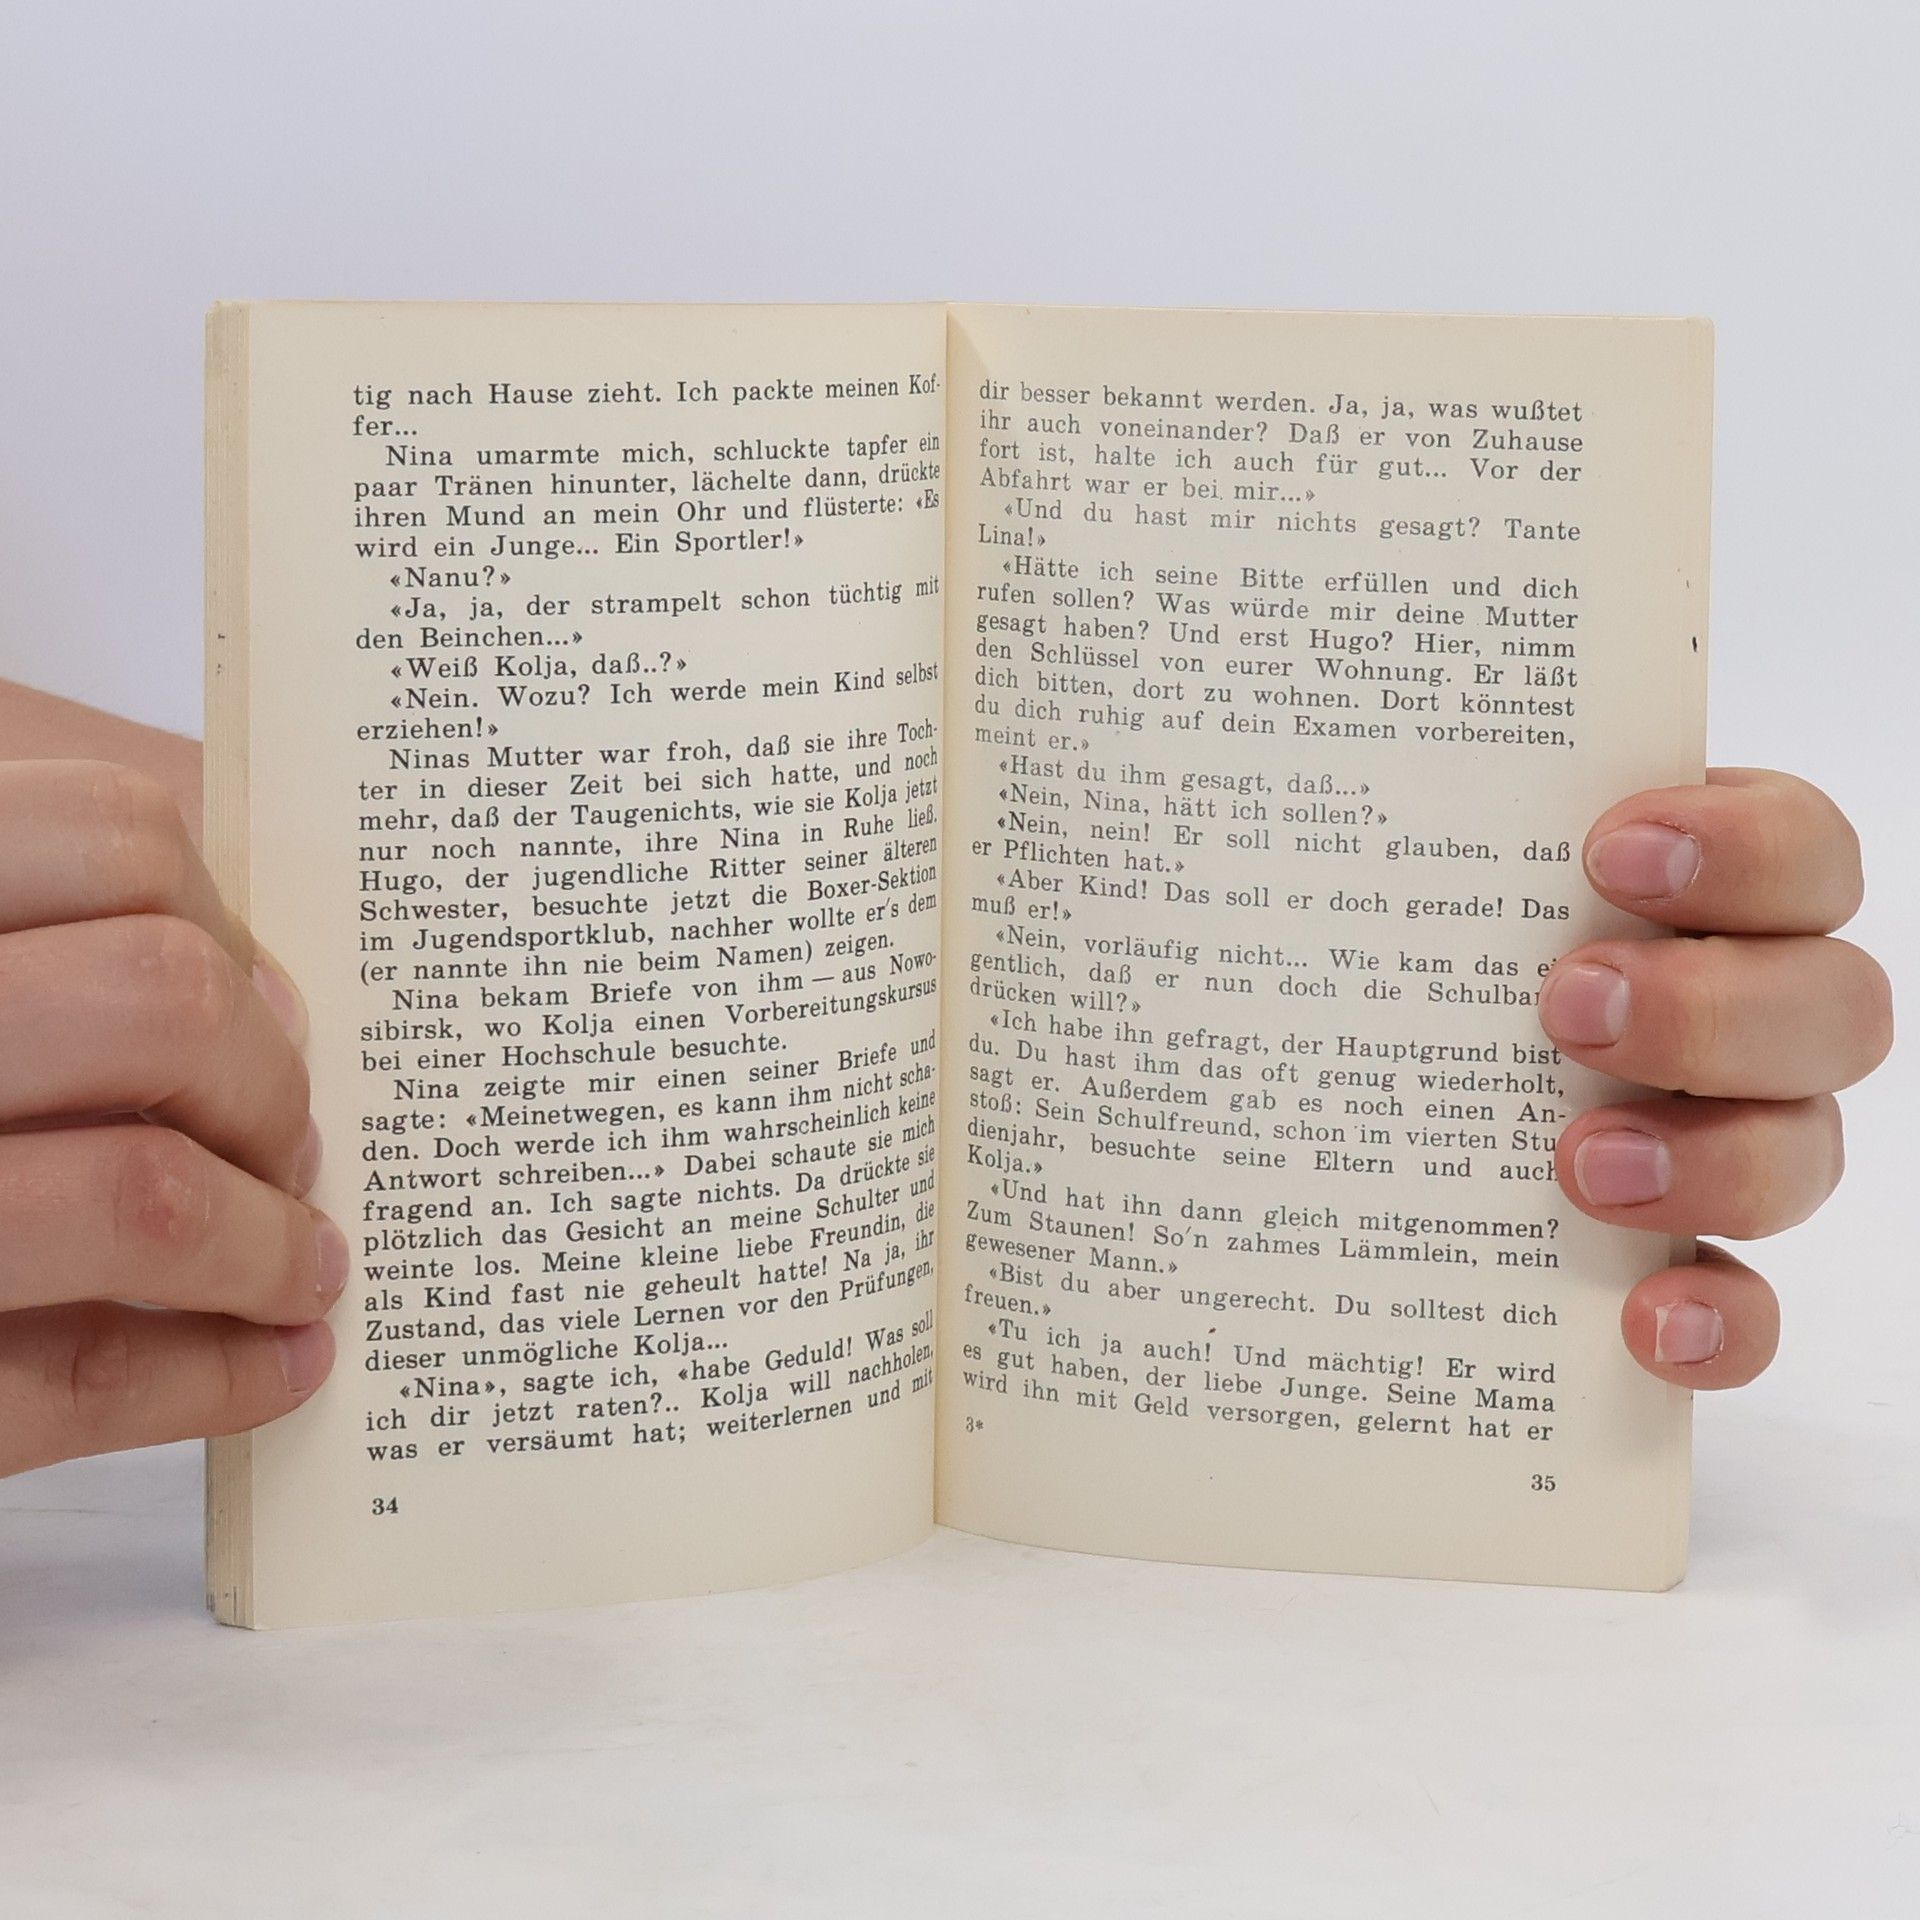 tig nach Hause zieht. Ich packte meinen Kof-
fer...
Nina umarmte mich, schluckte tapfer ein
paar Tränen hinunter, lächelte dann, drückte
ihren Mund an mein Ohr und flüsterte: «Es
wird ein Junge... Ein Sportler!»
«Nanu?»
«Ja, ja, der strampelt schon tüchtig mit
den Beinchen...»
«Weiß Kolja, daß..?»
«Nein. Wozu? Ich werde mein Kind selbst
erziehen!»
Ninas Mutter war froh, daß sie ihre Toch-
ter in dieser Zeit bei sich hatte, und noch
mehr, daß der Taugenichts, wie sie Kolja jetzt
nur noch nannte, ihre Nina in Ruhe ließ.
Hugo, der jugendliche Ritter seiner älteren
Schwester, besuchte jetzt die Boxer-Sektion
im Jugendsportklub, nachher wollte er's dem
(er nannte ihn nie beim Namen) zeigen.
Nina bekam Briefe von ihm — aus Nowo-
sibirsk, wo Kolja einen Vorbereitungskursus
bei einer Hochschule besuchte.
Nina zeigte mir einen seiner Briefe und
sagte: «Meinetwegen, es kann ihm nicht scha-
den. Doch werde ich ihm wahrscheinlich keine
Antwort schreiben...» Dabei schaute sie mich
fragend an. Ich sagte nichts. Da drückte sie
plötzlich das Gesicht an meine Schulter und
weinte los. Meine kleine liebe Freundin, die
als Kind fast nie geheult hatte! Na ja, ihr
Zustand, das viele Lernen vor den Prüfungen,
dieser unmögliche Kolja...
«Nina», sagte ich, «habe Geduld! Was soll
ich dir jetzt raten?.. Kolja will nachholen,
was er versäumt hat; weiterlernen und mit
34
dir besser bekannt werden. Ja, ja, was wußtet
ihr auch voneinander? Daß er von Zuhause
fort ist, halte ich auch für gut... Vor der
Abfahrt war er bei mir...»
«Und du hast mir nichts gesagt? Tante
Lina!»
«Hätte ich seine Bitte erfüllen und dich
rufen sollen? Was würde mir deine Mutter
gesagt haben? Und erst Hugo? Hier, nimm
den Schlüssel von eurer Wohnung. Er läßt
dich bitten, dort zu wohnen. Dort könntest
du dich ruhig auf dein Examen vorbereiten,
meint er.»
«Hast du ihm gesagt, daß...»
«Nein, Nina, hätt ich sollen?»
«Nein, nein! Er soll nicht glauben, daß
er Pflichten hat.»
«Aber Kind! Das soll er doch gerade! Das
muß er!»
«Nein, vorläufig nicht... Wie kam das ei
gentlich, daß er nun doch die Schulban
drücken will?»
«Ich habe ihn gefragt, der Hauptgrund bist
du. Du hast ihm das oft genug wiederholt,
sagt er. Außerdem gab es noch einen An-
stoß: Sein Schulfreund, schon im vierten Stu
dienjahr, besuchte seine Eltern und auch
Kolja.»
«Und hat ihn dann gleich mitgenommen?
Zum Staunen! So'n zahmes Lämmlein, mein
gewesener Mann.»
«Bist du aber ungerecht. Du solltest dich
freuen.»
«Tu ich ja auch! Und mächtig! Er wird
es gut haben, der liebe Junge. Seine Mama
wird ihn mit Geld versorgen, gelernt hat er
3*
35